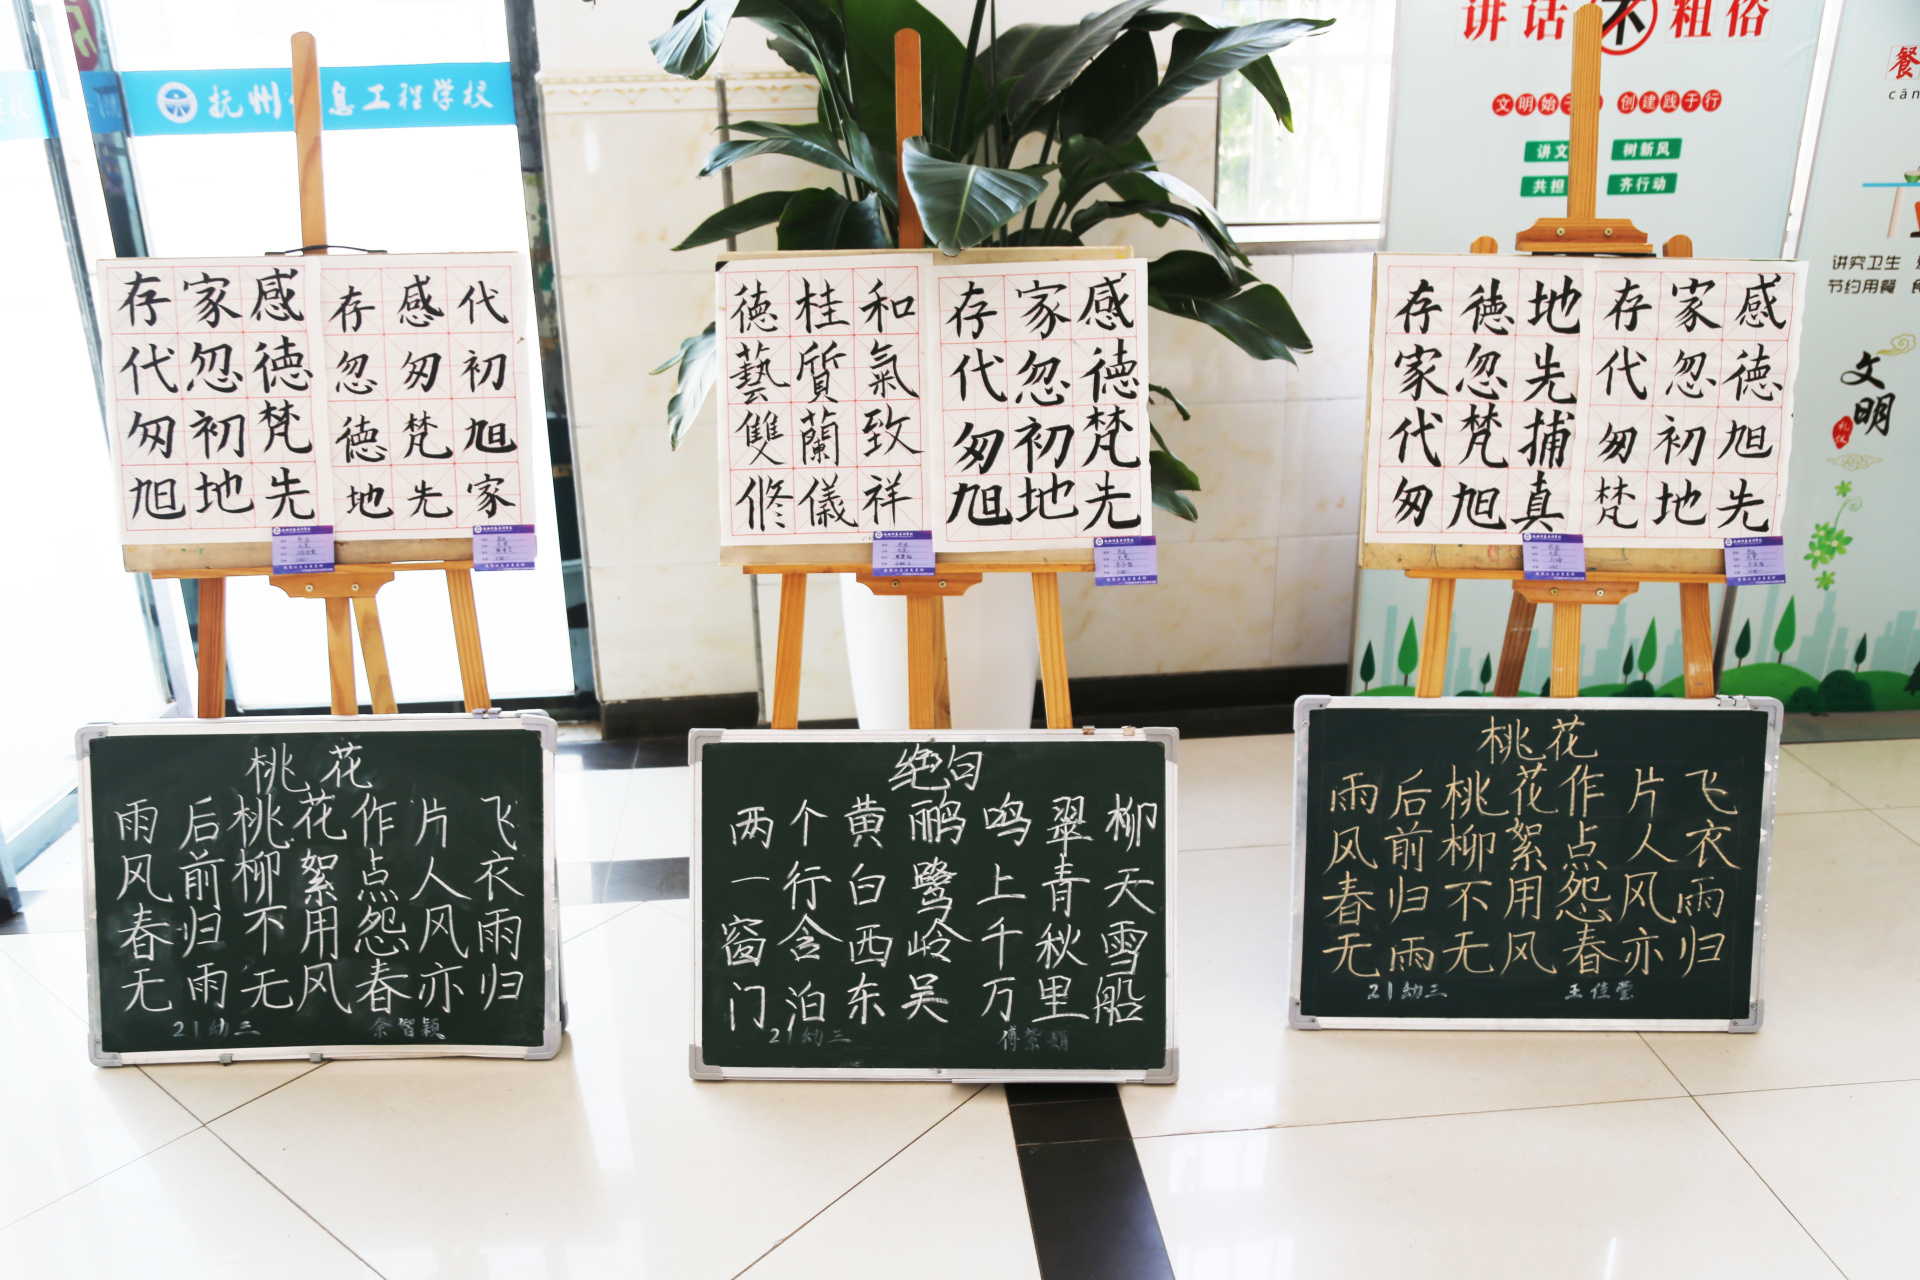 抚州 息工程学校
讲话不粗俗
文明始于
创建践于行
讲文
树新风
共担
齐行动
餐
cān
讲究卫生
节约用餐
文明
礼仪
存家感
代忽德
匆初梵
旭地先
存感代
忽匆初
德梵旭
地先家
和氣致祥
桂質蘭儀
德藝雙修
存家感
代忽德
匆初梵
旭地先
存德地
家忽先
代梵捕
匆旭真
存家感
代忽德
匆初旭
梵地先
桃花
雨后桃花作片飞
风前柳絮点人衣
春归不用怨风雨
无雨无风春亦归
21幼三 余智颖
绝句
两个黄鹂鸣翠柳
一行白鹭上青天
窗含西岭千秋雪
门泊东吴万里船
21幼三 傅紫娟
桃花
雨后桃花作片飞
风前柳絮点人衣
春归不用怨风雨
无雨无风春亦归
21幼三 王佳莹